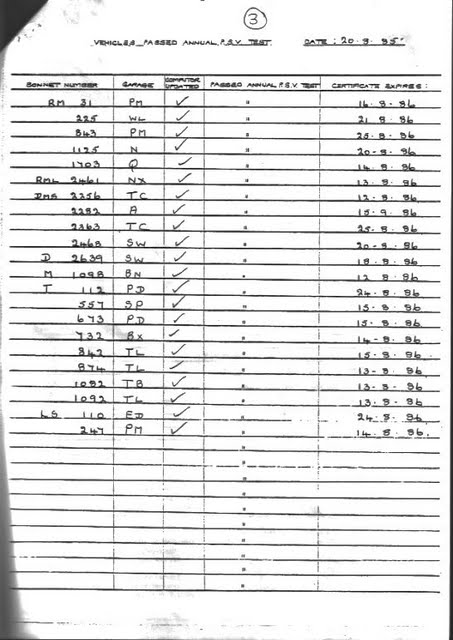 3
VEHICLES PASSED ANNUAL P.S.V. TEST. DATE : 20-8-85
BONNET NUMBER GARAGE COMPUTOR UPDATED PASSED ANNUAL P.S.V. TEST CERTIFICATE EXPIRES:
RM 31 PM ✓ " 16-8-86
225 WL ✓ " 21-8-86
843 PM ✓ " 25-8-86
1125 N ✓ " 20-8-86
1703 Q ✓ " 14-8-86
RML 2461 NX ✓ " 13-8-86
DMS 2256 TC ✓ " 12-8-86
2282 A ✓ " 15-9-86
2363 TC ✓ " 25-8-86
2468 SW ✓ " 20-8-86
D 2639 SW ✓ " 18-8-86
M 1098 BN ✓ " 12-8-86
T 112 PD ✓ " 24-8-86
557 SP ✓ " 15-8-86
673 PD ✓ " 15-8-86
732 BX ✓ " 14-8-86
842 TL ✓ " 15-8-86
874 TL ✓ " 13-8-86
1082 TB ✓ " 13-8-86
1092 TL ✓ " 13-8-86
LS 110 ED ✓ " 24-8-86
247 PM ✓ " 14-8-86
"
"
"
"
"
"
"
"
"